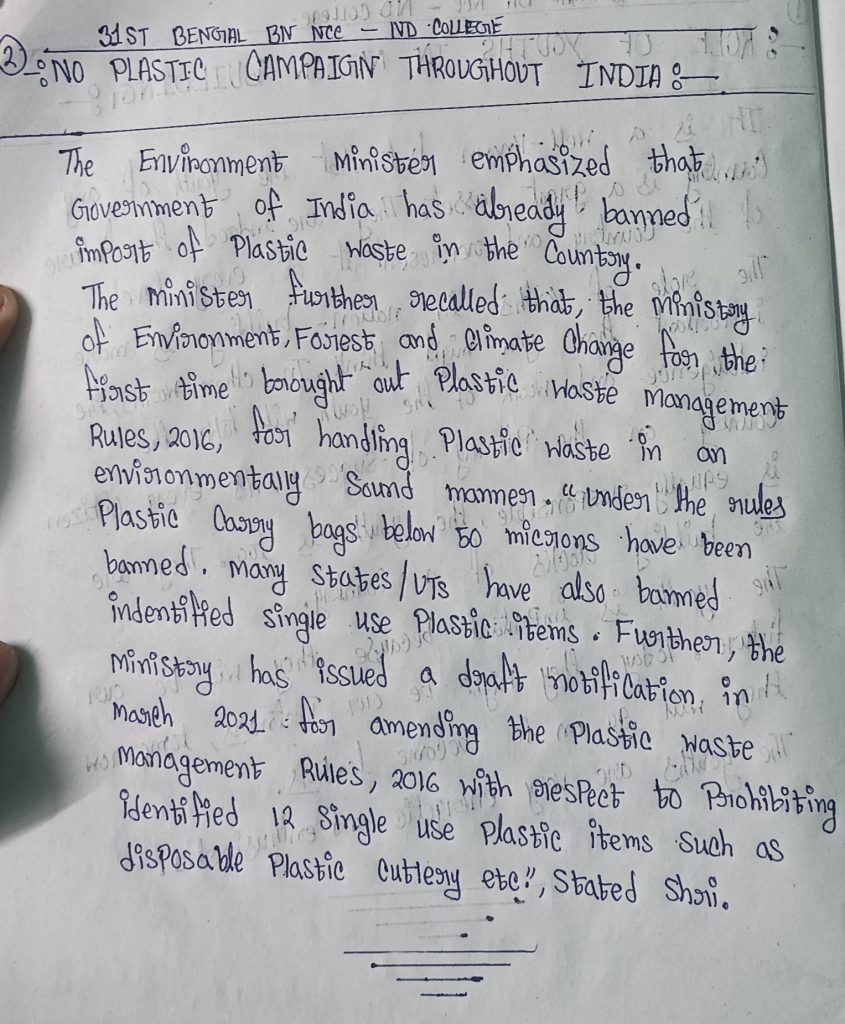 31ST BENGAL BN NCC – ND COLLEGE
② –: NO PLASTIC CAMPAIGN THROUGHOUT INDIA :–
The Environment Minister emphasized that
Government of India has already banned
import of Plastic waste in the Country.
The minister further recalled that, the ministry
of Environment, Forest and Climate Change for the
first time brought out Plastic waste management
Rules, 2016, for handling Plastic waste in an
environmentally Sound manner. "under the rules
Plastic Carry bags below 50 microns have been
banned. many states/UTs have also banned
indentified single use Plastic items. Further, the
ministry has issued a draft notification in
march 2021 for amending the Plastic waste
management Rules, 2016 with respect to Prohibiting
identified 12 single use Plastic items such as
disposable Plastic Cutlery etc.", Stated Shri.